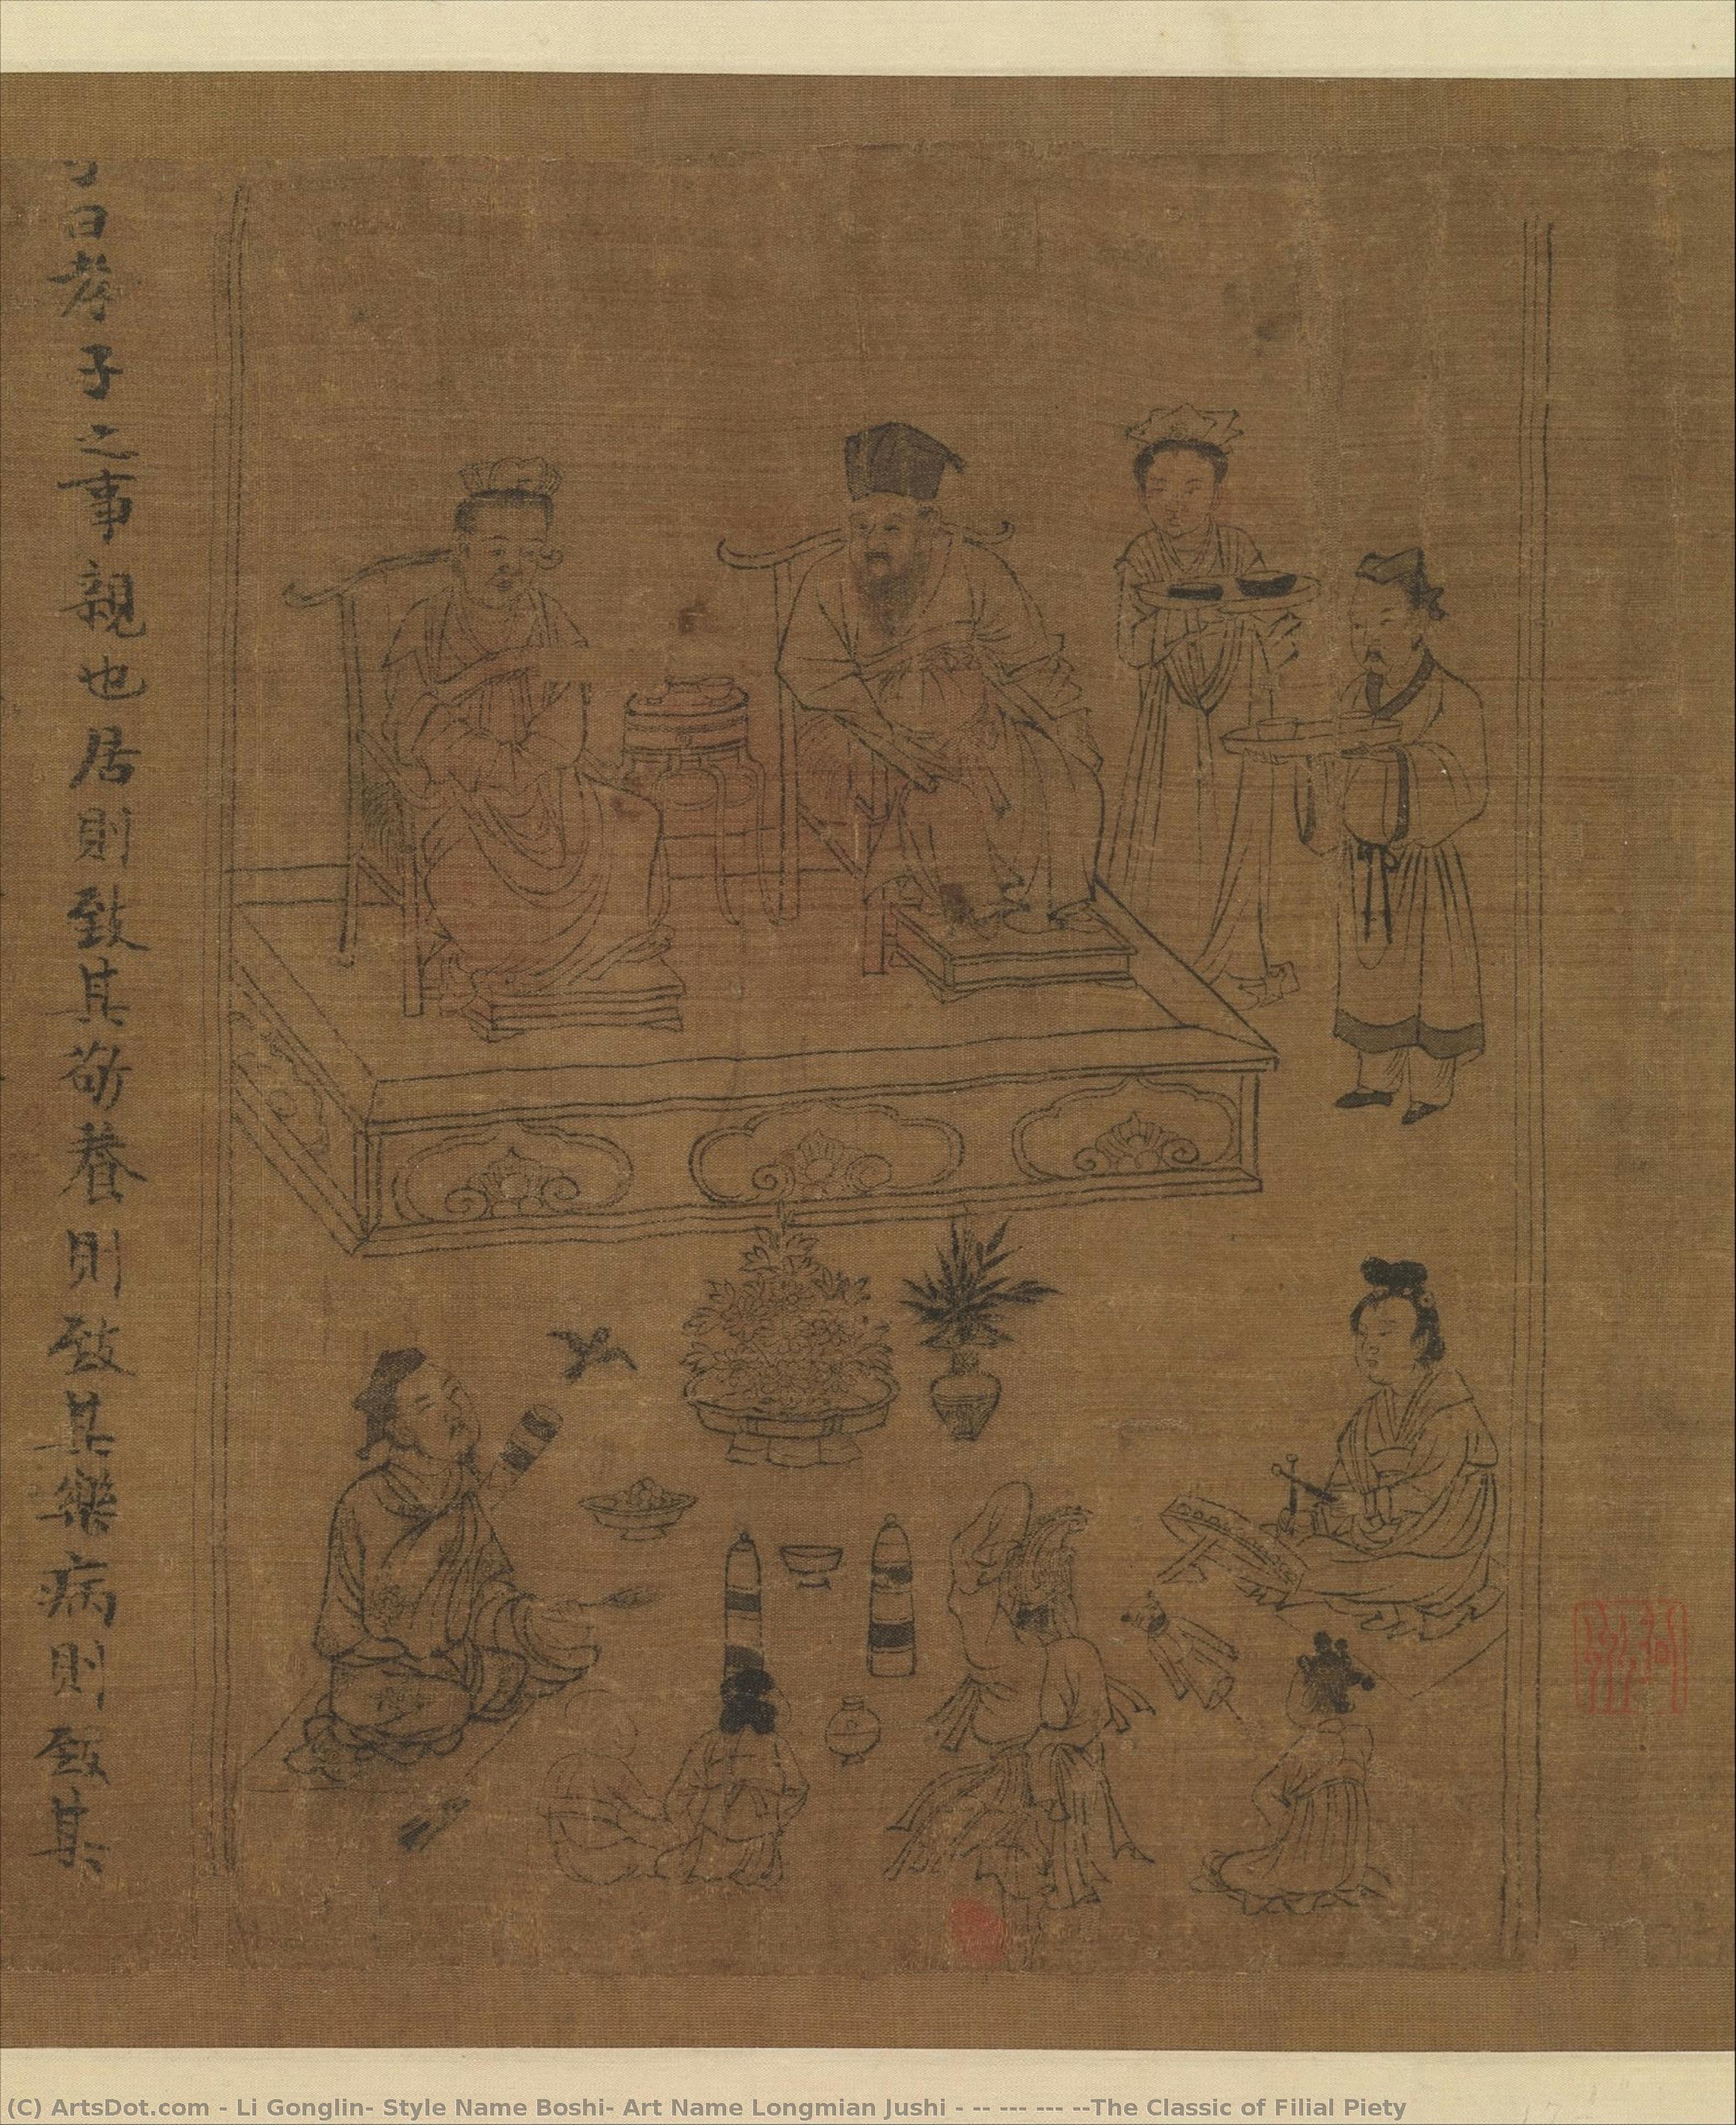 子曰孝子之事親也居則致其敬養則致其樂病則致其
(C) ArtsDot.com - Li Gonglin- Style Name Boshi- Art Name Longmian Jushi - -- --- --- --The Classic of Filial Piety